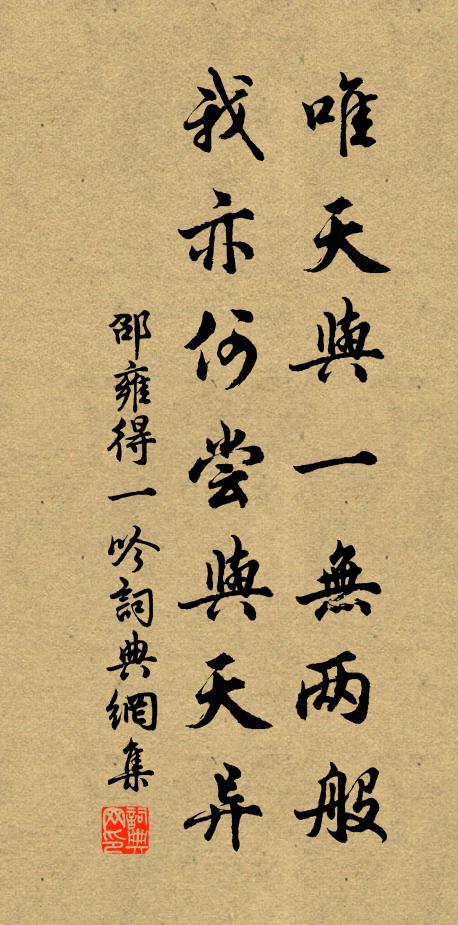 唯天與一無兩般
我亦何嘗與天异
邵雍得一吟詞典網集
詞典网印